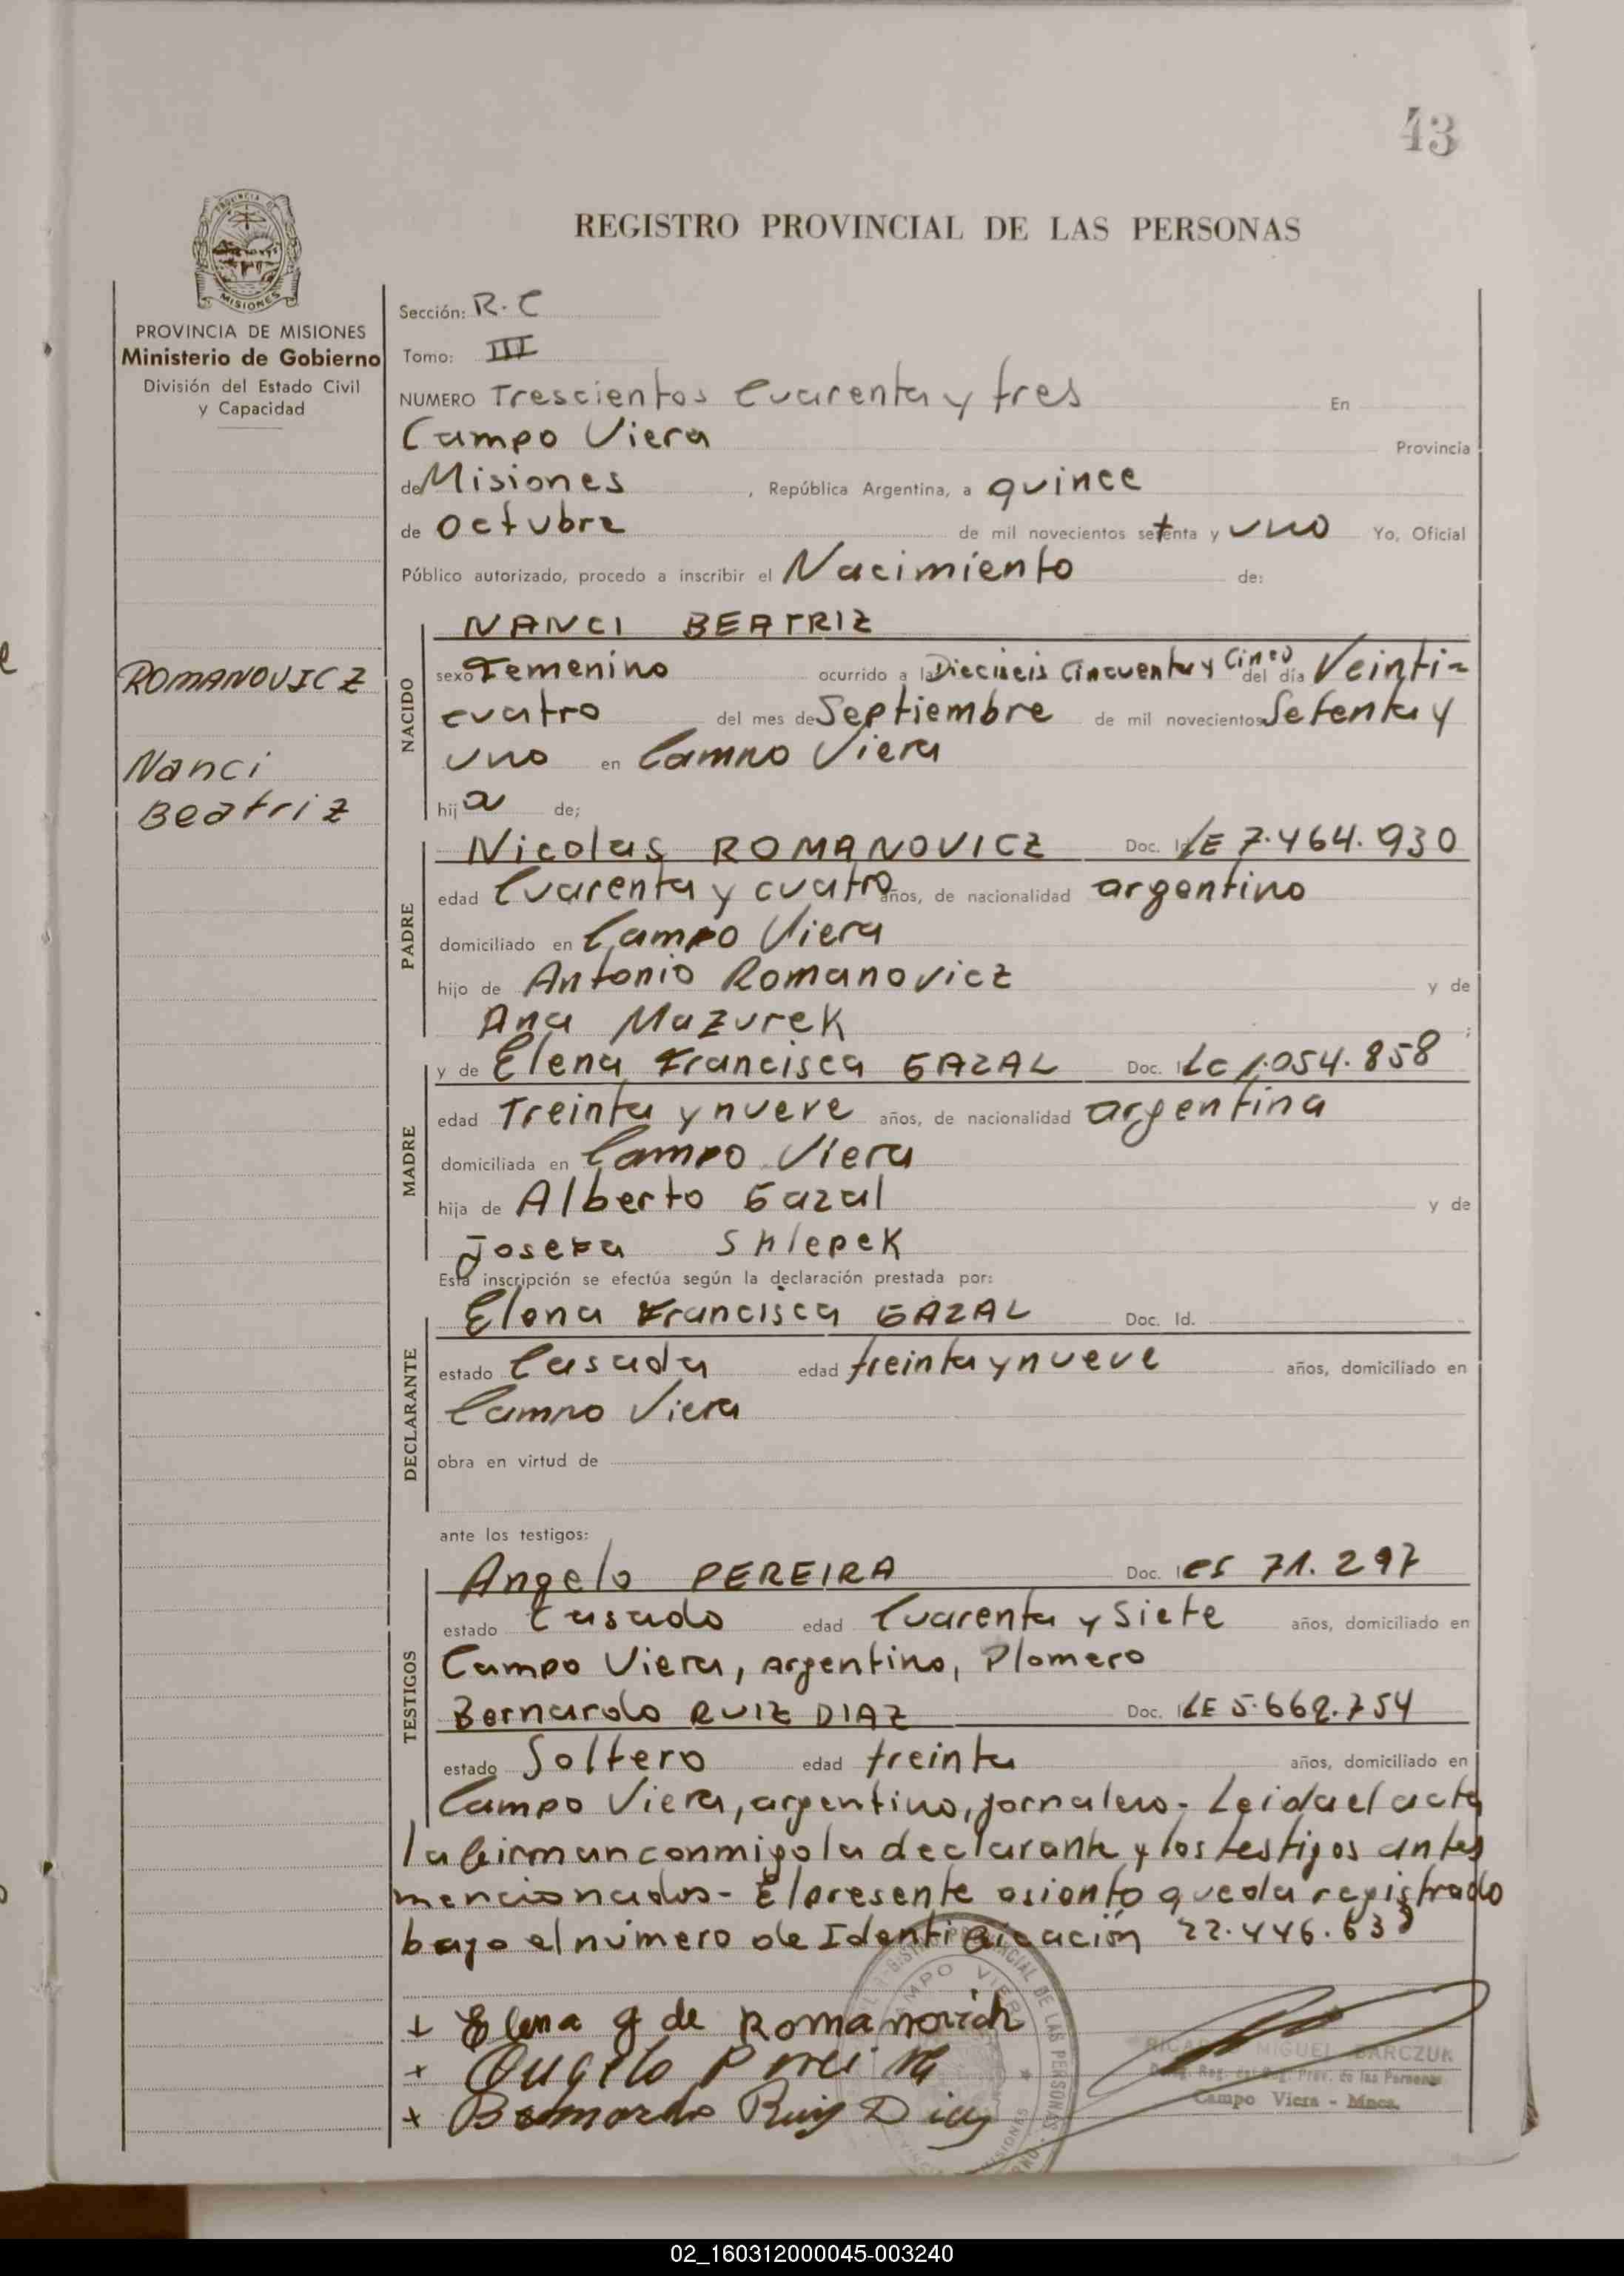 43
REGISTRO PROVINCIAL DE LAS PERSONAS
PROVINCIA DE
MISIONES
PROVINCIA DE MISIONES
Ministerio de Gobierno
División del Estado Civil
y Capacidad
ROMANOVICZ
Nanci
Beatriz
Sección: R.C
Tomo: III
NUMERO Trescientos Cuarenta y tres En
Campo Viera Provincia
de Misiones , República Argentina, a quince
de octubre de mil novecientos setenta y uno Yo, Oficial
Público autorizado, procedo a inscribir el Nacimiento de:
NACIDO
NANCI BEATRIZ
sexo Femenino ocurrido a la Dieciseis Cincuenta y Cinco del día Veinti-
cuatro del mes de Septiembre de mil novecientos Setenta y
uno en Campo Viera
hij a de;
PADRE
Nicolas ROMANOVICZ Doc. LE 7.464.930
edad Cuarenta y cuatro años, de nacionalidad argentino
domiciliado en Campo Viera
hijo de Antonio Romanovicz y de
Ana Mazurek ;
MADRE
y de Elena Francisca GAZAL Doc. LC 1.054.858
edad Treinta y nueve años, de nacionalidad argentina
domiciliada en Campo Viera
hija de Alberto Gazal y de
Josefa Shlepek
Esta inscripción se efectúa según la declaración prestada por:
DECLARANTE
Elena Francisca GAZAL Doc. Id.
estado Casada edad treinta y nueve años, domiciliado en
Campo Viera
obra en virtud de
ante los testigos:
TESTIGOS
Angelo PEREIRA Doc. 71.297
estado Casado edad Cuarenta y Siete años, domiciliado en
Campo Viera, argentino, Plomero
Bernardo RUIZ DIAZ Doc. LE 5.662.754
estado Soltero edad treinta años, domiciliado en
Campo Viera, argentino, jornalero. Leida el acta
la firman conmigo la declarante y los testigos antes
mencionados - El presente asiento queda registrado
bajo el número de Identificación 22.446.633
+ Elena g de Romanovich
+ Angelo Pereira
+ Bernardo Ruiz Diaz
CAMPO VIERA
PROVINCIAL DE LAS PERSONAS
MISIONES
RICARDO MIGUEL BARCZUK
Deleg. Reg. del Reg. Prov. de las Personas
Campo Viera - Mnes.
02_160312000045-003240